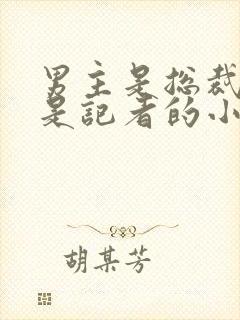 男主是总裁
是记者的小
胡某芳